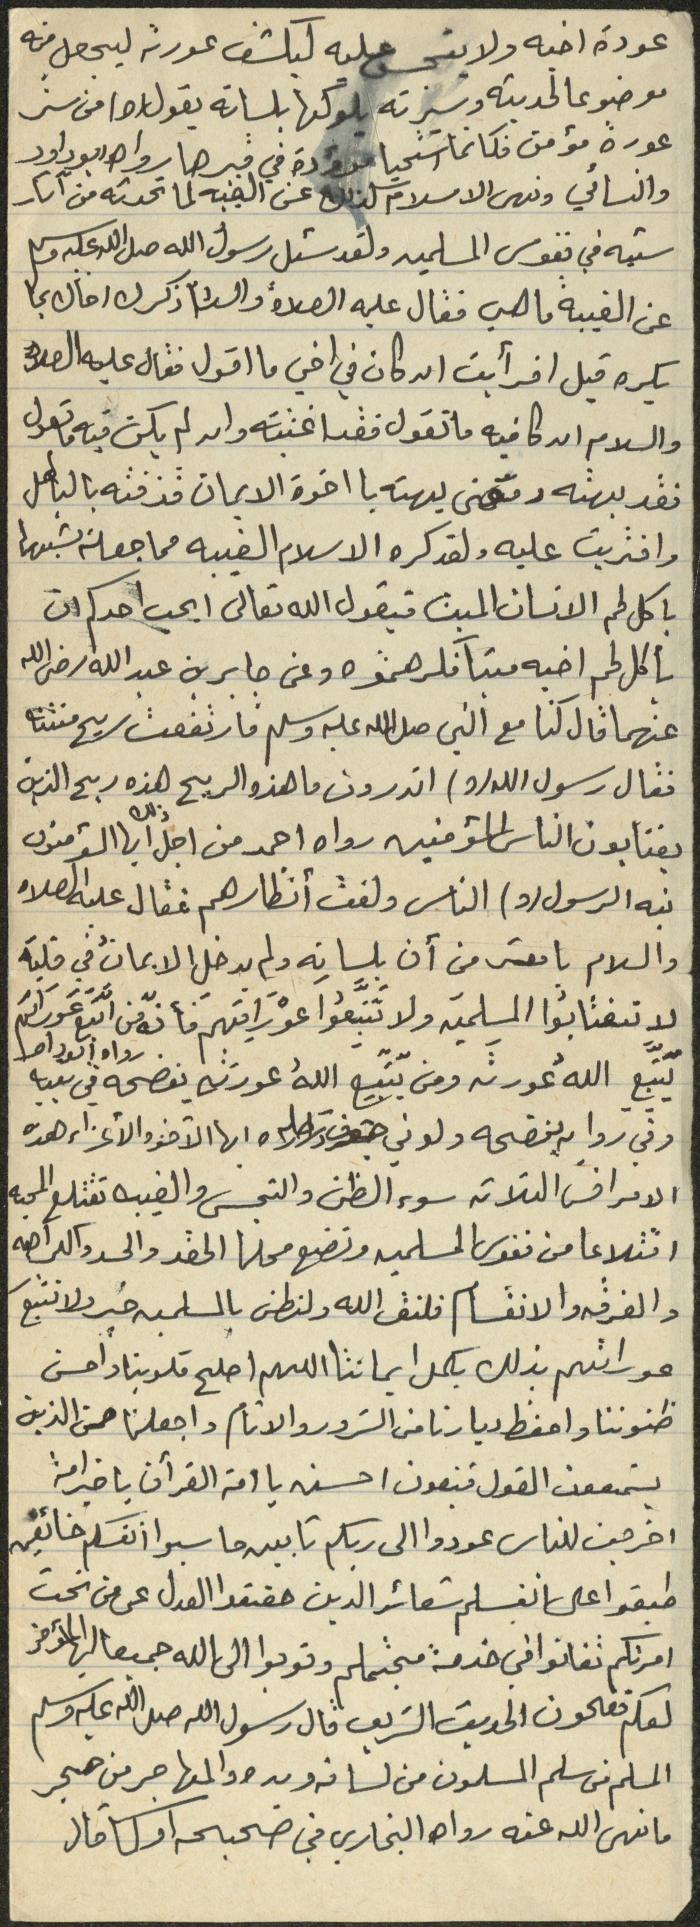 عورة اخيه ولا يتجسس عليه ليكشف عورته ليجعل منه
موضوعا لحديثه وسيرته يلوكها بلسانه يقول (ص) من ستر
عورة مؤمن فكانما استحيا موؤدة في قبرها رواه ابو داود
والنسائي ونهى الاسلام كذلك عن الغيبه لما تحدثه من آثار
سيئه في نفوس المسلمين ولقد سئل رسول الله صلى الله عليه وسلم
عن الغيبة ما هي فقال عليه الصلاة والسلام ذكرك اخاك بما
يكره قيل افرأيت ان كان في اخي ما اقول فقال عليه الصلاة
والسلام ان كا فيه ما تقول فقد اغتبته وان لم يكن فيه ما تقول
فقد بهته ومعنى بهته يا اخوة الايمان قذفته بالباطل
وافتريت عليه ولقد كره الاسلام الغيبه مما جعله يشبهها
باكل لحم الانسان الميت فيقول الله تعالى ايحب احدكم ان
يأكل لحم اخيه ميتا فكرهتموه وعن جابر بن عبد الله رضي الله
عنهما قال كنا مع النبي صلى الله عليه وسلم فارتفعت ريح منتنه
فقال رسول الله (ص) اتدرون ما هذه الريح هذه ريح الذين
يغتابون الناس المؤمنين رواه احمد من اجل ذلك ايها المؤمنون
نبه الرسول (ص) الناس ولفت أنظارهم فقال عليه الصلاه
والسلام يا معشر من أمن بلسانِه ولم يدخل الايمانُ في قلبِه
لا تغتابُوا المسلمين ولا تَتَّبِّعُوا عوْرَاتِهم فأنّه من اتَّبَعَ عَوراتِهم
يَتَّبِّعِ اللهُ عورتَه ومن يتّبِّعِ اللهُ عورتَه يفضحه في بيته رواه ابو داود
وفي روايه يفضحه ولو في جوف رحله ايها الأخوه الأعزاء هذه
الامراض الثلاثه سوء الظن والتجسس والغيبه تقتلع المحبه
اقتلاعا من نفوس المسلمين وتضع محلها الحقد والحسد والكراهه
والفرقه والانقسام فلنتق الله ولنظن بالمسلمين خير ولا نتبع
عوراتهم بذلك يكمل ايماننا اللهم اصلح قلوبنا وأحسن
ظنوننا واحفظ ديارنا من الشرور والاثام واجعلنا من الذين
يستمعون القول فيتبعون احسنه يا امة القرآن يا خير امة
اخرجت للناس عودوا الى ربكم تائبين حاسبوا انفسكم خائفين
طبقوا على انفسكم شعائر الدين حققوا العدل عمن تحت
امرتكم تفانوا في خدمة مجتمعكم وتوبوا الى الله جميعا ايها المؤمنون
لعلكم تفلحون الحديث الشريف قال رسول الله صلى الله عليه وسلم
المسلم من سلم المسلمون من لسانه ويده والمهاجر من هجر
ما نهى الله عنه رواه البخاري في صحيحه او كما قال